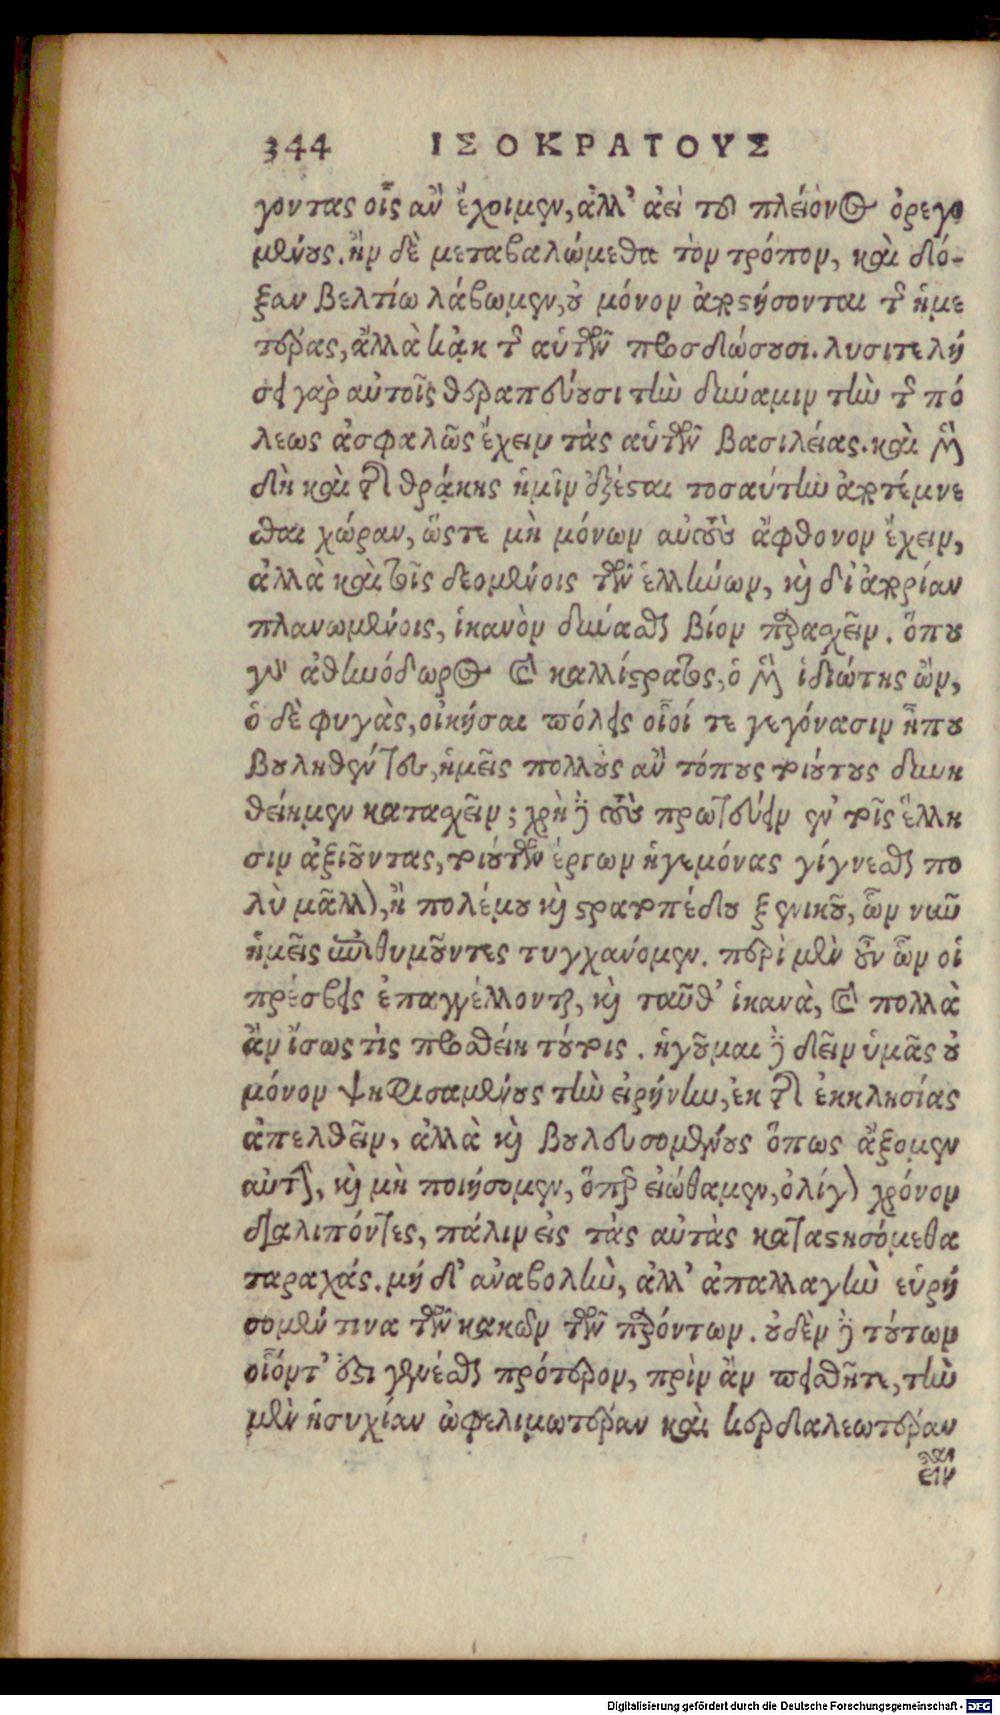 344 ΙΣΟΚΡΑΤΟΥΣ
γοντας οἷς ἂν ἔχοιμεν, ἀλλ' ἀεὶ τοῦ πλείονος ὀρεγο
μένους. ἢν δὲ μεταβαλώμεθα τὸν τρόπον, καὶ δό-
ξαν βελτίω λάβωμεν, οὐ μόνον ἀποστήσονται τῆς ἡμε
τέρας, ἀλλὰ κᾀκ τῆς αὑτῶν προσδώσουσι. λυσιτελή
σει γὰρ αὐτοῖς θεραπεύουσι τὴν δύναμιν τὴν τῆς πό
λεως ἀσφαλῶς ἔχειν τὰς αὑτῶν βασιλείας. καὶ μὲν
δὴ καὶ τῆς θράκης ἡμῖν ἐξέσται τοσαύτην ἀποτέμνε
σθαι χώραν, ὥστε μὴ μόνων αὐτοὺς ἄφθονον ἔχειν,
ἀλλὰ καὶ τοῖς δεομένοις τῶν ἑλλήνων, καὶ δι' ἀπορίαν
πλανωμένοις, ἱκανὸν δύνασθαι βίον παρασχεῖν. ὅπου
γὰρ ἀθηνόδωρος καὶ καλλίστρατος, ὁ μὲν ἰδιώτης ὢν,
ὁ δὲ φυγὰς, οἰκῆσαι πόλεις οἷοί τε γεγόνασιν ἦπου
βουληθέντες, ἡμεῖς πολλοὺς ἂν τόπους τοιούτους δυνη
θείημεν κατασχεῖν; χρὴ δὲ τοὺς πρωτεύειν ἐν τοῖς ἕλλη
σιν ἀξιοῦντας, τοιούτων ἔργων ἡγεμόνας γίγνεσθαι πο
λὺ μᾶλλον, ἢ πολέμου καὶ στρατοπέδου ξενικοῦ, ὧν νῦν
ἡμεῖς ἐπιθυμοῦντες τυγχάνομεν. περὶ μὲν οὖν ὧν οἱ
πρέσβεις ἐπαγγέλλονται, καὶ ταῦθ' ἱκανὰ, καὶ πολλὰ
ἂν ἴσως τὶς προσθείη τούτοις. ἡγοῦμαι δὲ δεῖν ὑμᾶς οὐ
μόνον ψηφισαμένους τὴν εἰρήνην, ἐκ τῆς ἐκκλησίας
ἀπελθεῖν, ἀλλὰ καὶ βουλευσομένους ὅπως ἄξομεν
αὐτὴν, καὶ μὴ ποιήσομεν, ὅπερ εἰώθαμεν, ὀλίγον χρόνον
διαλιπόντες, πάλιν εἰς τὰς αὐτὰς καταστησόμεθα
ταραχάς. μή δ' ἀναβολὴν, ἀλλ' ἀπαλλαγὴν εὑρή
σομέν τινα τῶν κακῶν τῶν παρόντων. οὐδὲν δὲ τούτων
οἷόντ' ἔστι γενέσθαι πρότερον, πρὶν ἂν πεισθῆτε, τὴν
μὲν ἡσυχίαν ὠφελιμωτέραν καὶ κερδαλεωτέραν
εἶναι
Digitalisierung gefördert durch die Deutsche Forschungsgemeinschaft - DFG